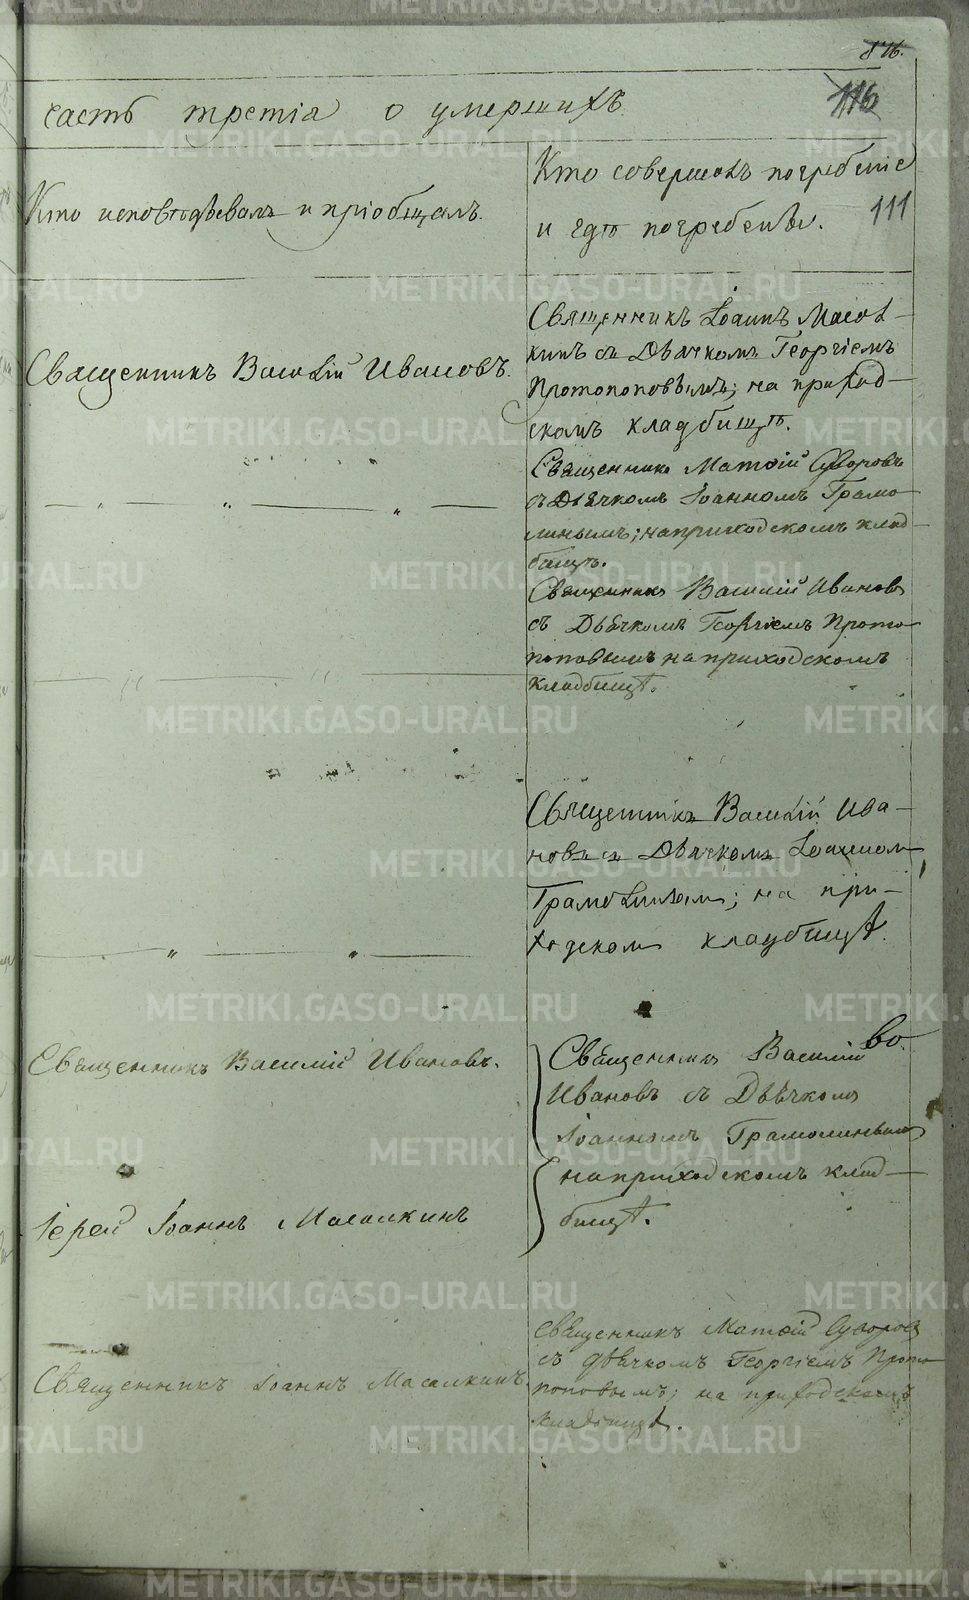 846.
116
часть третіа о умершихъ.
111
Кто исповѣдывалъ и пріобщалъ.
Кто совершалъ погребеніе
и гдѣ погребены.
Священникъ Василій Ивановъ.
Священникъ Іоаннъ Масал-
кинъ съ Дьячкомъ Георгіемъ
Протопоповымъ; на приход-
скомъ кладбищѣ.
— „ — „ — „ —
Священникъ Матѳій Суворовъ
съ Дьячкомъ Іоанномъ Грамо-
линымъ; на приходскомъ клад-
бищѣ.
— „ — „ —
Священникъ Василій Ивановъ
съ Дьячкомъ Георгіемъ Прото-
поповымъ на приходскомъ
кладбищѣ.
— „ — „ —
Священникъ Василій Ива-
новъ съ Дьячкомъ Іоанном
Грамолинымъ; на при-
ходском кладбищѣ.
Священникъ Василій Ивановъ.
Священникъ Василій
Во
Ивановъ съ Дьячкомъ
Іоанномъ Грамолинымъ
на приходскомъ клад-
бищѣ.
Іерей Іоаннъ Масалкинъ
Священникъ Іоаннъ Масалкинъ.
Священникъ Матѳій Суворовъ
съ дьячкомъ Георгіемъ Прото-
поповымъ; на приходскомъ
кладбищѣ.
METRIKI.GASO-URAL.RU